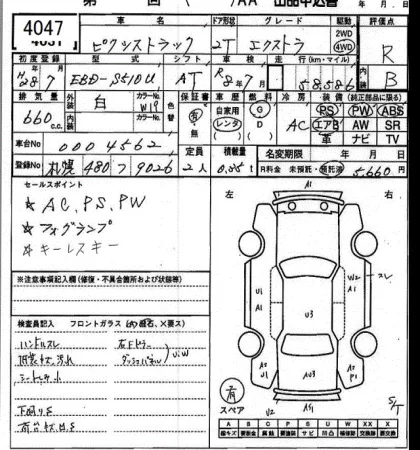 第 回 ( /AA 出品申込書
年 月 日
4047
車名 ドア形状 グレード 駆動 評価点
ピクシストラック 2T エクストラ 2WD 4WD R
初度登録 型式 シフト 車検 走行(km・マイル) 内装
H28.7 EBD-S510U AT R8年7月 58,586 B
排気量 外装 カラーNo. 色替 保証書 車歴 燃料 冷房 装備(純正部品に限る)
660 c.c. 白 W19 有・無 自家用 レンタ G D AC PS PW ABS
エアB AW SR
革 ナビ TV
車台No 0004562
定員 積載量 名変期限 年 月 日
登録No 札幌 480 フ 9026 2人 0.35t R料金 未預託・預託済 5,660円
セールスポイント
☆ AC, PS, PW
☆ フォグランプ
☆ キーレスキー
左 右
A1
W2
A1
スレ
U1
A1
U3
A2
U1
AU3
A2
P1
有
スペア
U2
A1
S/T
※注意事項記入欄(修復・不具合箇所および状態等)
検査員記入 フロントガラス
ハンドルスレ
内装キズ、汚れ
シートしみ小
ダッシュパネル
下廻りS
荷台キズ、凹、S
A B C P S U W X XX X